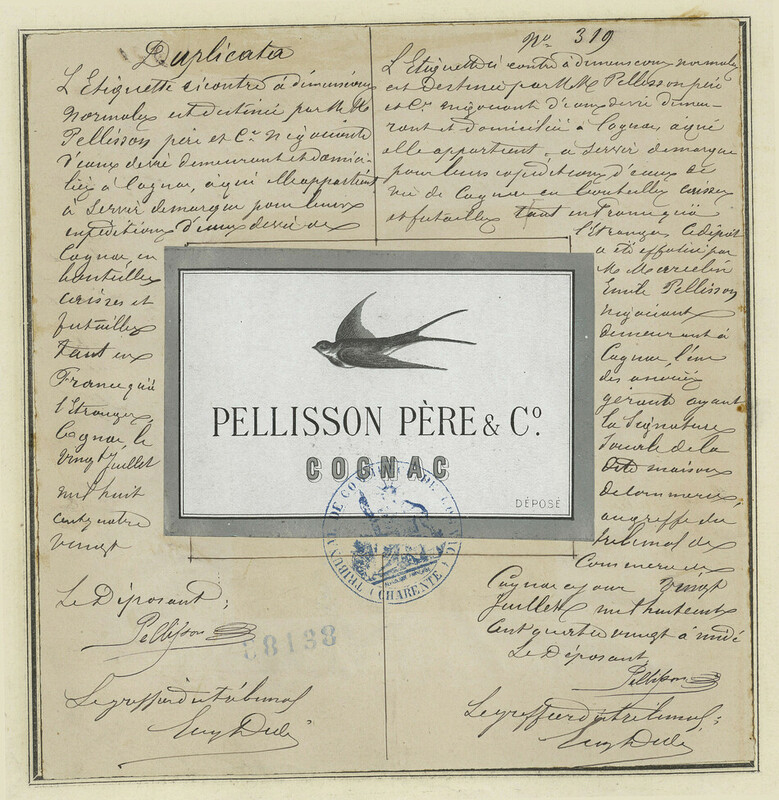 Duplicata
L'Etiquette ci contre à dimensions
normales est destinée par M.M.
Pellisson père et Cie négociants
d'eaux de vie demeurant et domici-
liés à Cognac, à qui elle appartient
à servir de marque pour leurs
expéditions d'eaux de vie de
Cognac en
bouteilles
caisses et
futailles
tant en
France qu'à
l'Etranger
Cognac, le
vingt Juillet
mil huit
cent quatre
vingt
Le Déposant;
Pellisson
Le greffier du tribunal
No 319
L'Etiquette ci contre à dimensions normales
est destinée par M.M. Pellisson père
et Cie négociant d'eaux de vie demeu-
rant et domicilié à Cognac, à qui
elle appartient, à servir de marque
pour leurs expéditions d'eaux de
vie de Cognac en bouteilles caisses
et futailles tant en France qu'à
l'Etranger Ce dépôt
a été effectué par
M. Marcelin
Emile Pellisson
négociant
demeurant à
Cognac, l'un
des associés
gérant ayant
la signature
sociale de la
dite maison
de commerce,
au greffe du
tribunal de
Commerce de
Cognac ce jour vingt
Juillet mil huit cent
cent quatre vingt à midi
Le Déposant
Pellisson
Le greffier du tribunal;
PELLISSON PÈRE & Co.
COGNAC
DÉPOSÉ
TRIBUNAL DE COMMERCE DE COGNAC (CHARENTE)
58138